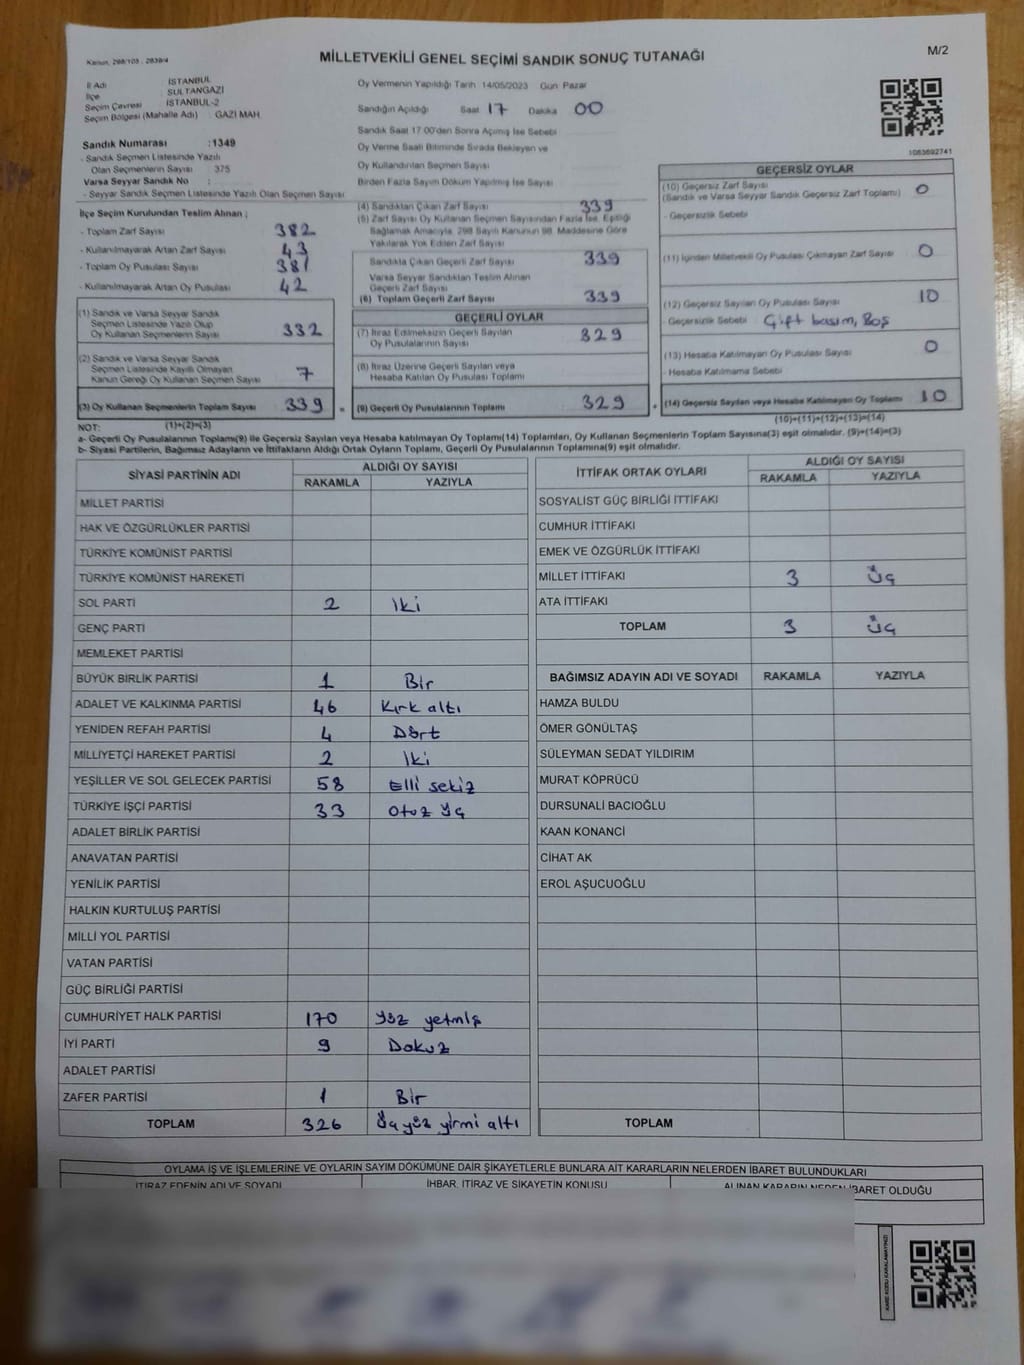 Kanun, 298/105 , 2839/4
MİLLETVEKİLİ GENEL SEÇİMİ SANDIK SONUÇ TUTANAĞI
M/2
İl Adı İSTANBUL
İlçe SULTANGAZİ
Seçim Çevresi İSTANBUL-2
Seçim Bölgesi (Mahalle Adı) GAZİ MAH
Oy Vermenin Yapıldığı Tarih 14/05/2023 Gün Pazar
Sandığın Açıldığı Saat 17 Dakika 00
Sandık Saat 17:00'den Sonra Açılmış İse Sebebi
Oy Verme Saati Bitiminde Sırada Bekleyen ve
Oy Kullandırılan Seçmen Sayısı
Birden Fazla Sayım Döküm Yapılmış İse Sayısı
1083692741
Sandık Numarası :1349
- Sandık Seçmen Listesinde Yazılı
Olan Seçmenlerin Sayısı : 375
Varsa Seyyar Sandık No :
- Seyyar Sandık Seçmen Listesinde Yazılı Olan Seçmen Sayısı
İlçe Seçim Kurulundan Teslim Alınan ;
- Toplam Zarf Sayısı 382
- Kullanılmayarak Artan Zarf Sayısı 43
- Toplam Oy Pusulası Sayısı 381
- Kullanılmayarak Artan Oy Pusulası 42
(1) Sandık ve Varsa Seyyar Sandık
Seçmen Listesinde Yazılı Olup
Oy Kullanan Seçmenlerin Sayısı 332
(2) Sandık ve Varsa Seyyar Sandık
Seçmen Listesinde Kayıtlı Olmayan
Kanun Gereği Oy Kullanan Seçmen Sayısı 7
(3) Oy Kullanan Seçmenlerin Toplam Sayısı 339 =
(1)+(2)=(3)
(4) Sandıktan Çıkan Zarf Sayısı 339
(5) Zarf Sayısı Oy Kullanan Seçmen Sayısından Fazla İse, Eşitliği
Sağlamak Amacıyla, 298 Sayılı Kanunun 98. Maddesine Göre
Yakılarak Yok Edilen Zarf Sayısı
Sandıkta Çıkan Geçerli Zarf Sayısı 339
Varsa Seyyar Sandıktan Teslim Alınan
Geçerli Zarf Sayısı
(6) Toplam Geçerli Zarf Sayısı 339
GEÇERLİ OYLAR
(7) İtiraz Edilmeksizin Geçerli Sayılan
Oy Pusulalarının Sayısı 329
(8) İtiraz Üzerine Geçerli Sayılan veya
Hesaba Katılan Oy Pusulası Toplamı
(9) Geçerli Oy Pusulalarının Toplamı 329 +
GEÇERSİZ OYLAR
(10) Geçersiz Zarf Sayısı
(Sandık ve Varsa Seyyar Sandık Geçersiz Zarf Toplamı) 0
- Geçersizlik Sebebi
(11) İçinden Milletvekili Oy Pusulası Çıkmayan Zarf Sayısı 0
(12) Geçersiz Sayılan Oy Pusulası Sayısı 10
- Geçersizlik Sebebi Çift basım, Boş
(13) Hesaba Katılmayan Oy Pusulası Sayısı 0
- Hesaba Katılmama Sebebi
(14) Geçersiz Sayılan veya Hesaba Katılmayan Oy Toplamı 10
(10)+(11)+(12)+(13)=(14)
NOT:
a- Geçerli Oy Pusulalarının Toplamı(9) ile Geçersiz Sayılan veya Hesaba katılmayan Oy Toplamı(14) Toplamları, Oy Kullanan Seçmenlerin Toplam Sayısına(3) eşit olmalıdır. (9)+(14)=(3)
b- Siyasi Partilerin, Bağımsız Adayların ve İttifakların Aldığı Ortak Oyların Toplamı, Geçerli Oy Pusulalarının Toplamına(9) eşit olmalıdır.
SİYASİ PARTİNİN ADI ALDIĞI OY SAYISI
RAKAMLA YAZIYLA
MİLLET PARTİSİ
HAK VE ÖZGÜRLÜKLER PARTİSİ
TÜRKİYE KOMÜNİST PARTİSİ
TÜRKİYE KOMÜNİST HAREKETİ
SOL PARTİ 2 İki
GENÇ PARTİ
MEMLEKET PARTİSİ
BÜYÜK BİRLİK PARTİSİ 1 Bir
ADALET VE KALKINMA PARTİSİ 46 Kırk altı
YENİDEN REFAH PARTİSİ 4 Dört
MİLLİYETÇİ HAREKET PARTİSİ 2 İki
YEŞİLLER VE SOL GELECEK PARTİSİ 58 Elli sekiz
TÜRKİYE İŞÇİ PARTİSİ 33 Otuz üç
ADALET BİRLİK PARTİSİ
ANAVATAN PARTİSİ
YENİLİK PARTİSİ
HALKIN KURTULUŞ PARTİSİ
MİLLİ YOL PARTİSİ
VATAN PARTİSİ
GÜÇ BİRLİĞİ PARTİSİ
CUMHURİYET HALK PARTİSİ 170 Yüz yetmiş
İYİ PARTİ 9 Dokuz
ADALET PARTİSİ
ZAFER PARTİSİ 1 Bir
TOPLAM 326 Üçyüz yirmi altı
İTTİFAK ORTAK OYLARI ALDIĞI OY SAYISI
RAKAMLA YAZIYLA
SOSYALİST GÜÇ BİRLİĞİ İTTİFAKI
CUMHUR İTTİFAKI
EMEK VE ÖZGÜRLÜK İTTİFAKI
MİLLET İTTİFAKI 3 Üç
ATA İTTİFAKI
TOPLAM 3 Üç
BAĞIMSIZ ADAYIN ADI VE SOYADI RAKAMLA YAZIYLA
HAMZA BULDU
ÖMER GÖNÜLTAŞ
SÜLEYMAN SEDAT YILDIRIM
MURAT KÖPRÜCÜ
DURSUNALİ BACIOĞLU
KAAN KONANCİ
CİHAT AK
EROL AŞUCUOĞLU
TOPLAM
OYLAMA İŞ VE İŞLEMLERİNE VE OYLARIN SAYIM DÖKÜMÜNE DAİR ŞİKAYETLERLE BUNLARA AİT KARARLARIN NELERDEN İBARET BULUNDUKLARI
İTİRAZ EDENİN ADI VE SOYADI İHBAR, İTİRAZ VE ŞİKAYETİN KONUSU ALINAN KARARIN NEDEN İBARET OLDUĞU
KARE KODU KARALAMAYINIZ!